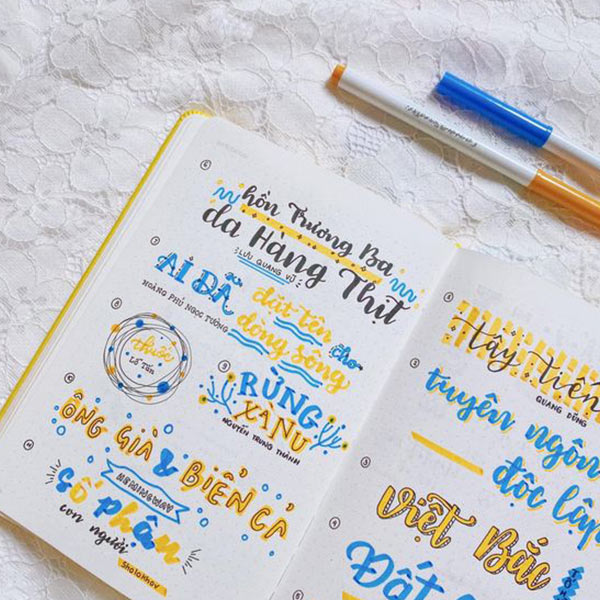 6
hồn Trương Ba
da Hàng Thịt
LƯU QUANG VŨ
7
AI ĐÃ
đặt tên
cho
dòng sông
HOÀNG PHỦ NGỌC TƯỜNG
8
thuốc
Lỗ Tấn
9
RỪNG
XÀ NU
NGUYỄN TRUNG THÀNH
ÔNG GIÀ & BIỂN CẢ
HEMINGWAY
số phận
con người
Sholokhov
1
tây tiến
QUANG DŨNG
tuyên ngôn
độc lập
3
Việt Bắc
4
5
Đất